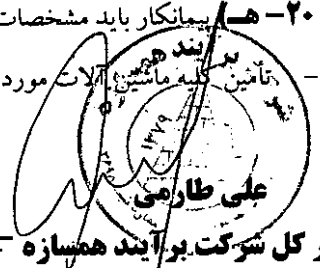 ۲۰- هـ) پیمانکار باید مشخصات
برآیند هـ
- تأمین کلیه ماشین آلات مورد
۱۳۷۹
علی طارمی
ر کل شرکت برآیند همسازه